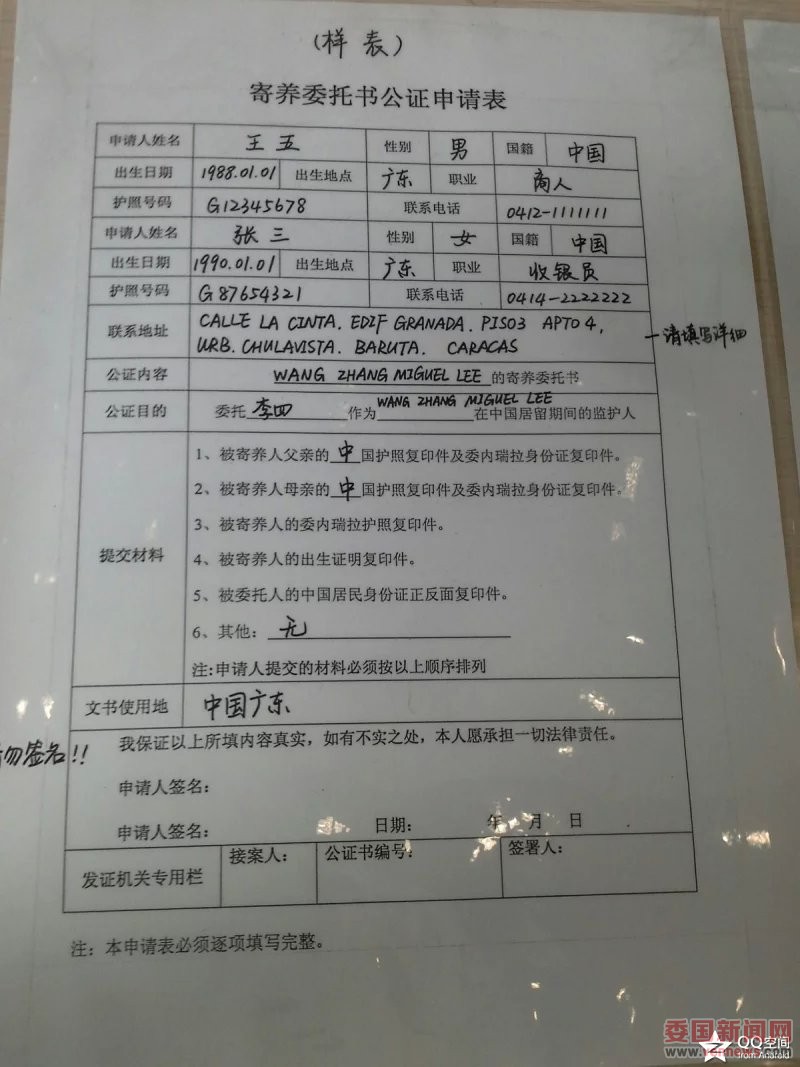 （样表）
寄养委托书公证申请表
申请人姓名 王五 性别 男 国籍 中国
出生日期 1988.01.01 出生地点 广东 职业 商人
护照号码 G12345678 联系电话 0412-1111111
申请人姓名 张三 性别 女 国籍 中国
出生日期 1990.01.01 出生地点 广东 职业 收银员
护照号码 G87654321 联系电话 0414-2222222
联系地址 CALLE LA CINTA. EDIF GRANADA. PISO3 APTO 4,
URB. CHULAVISTA. BARUTA. CARACAS
一请填写详细
公证内容 WANG ZHANG MIGUEL LEE 的寄养委托书
公证目的 委托李四作为WANG ZHANG MIGUEL LEE在中国居留期间的监护人
提交材料
1、被寄养人父亲的中国护照复印件及委内瑞拉身份证复印件。
2、被寄养人母亲的中国护照复印件及委内瑞拉身份证复印件。
3、被寄养人的委内瑞拉护照复印件。
4、被寄养人的出生证明复印件。
5、被委托人的中国居民身份证正反面复印件。
6、其他：无
注:申请人提交的材料必须按以上顺序排列
文书使用地 中国广东
我保证以上所填内容真实，如有不实之处，本人愿承担一切法律责任。
勿签名!!
申请人签名：
申请人签名： 日期： 年 月 日
发证机关专用栏 接案人： 公证书编号： 签署人：
注：本申请表必须逐项填写完整。
委国新闻网
www.venews.com
QQ空间
from Android